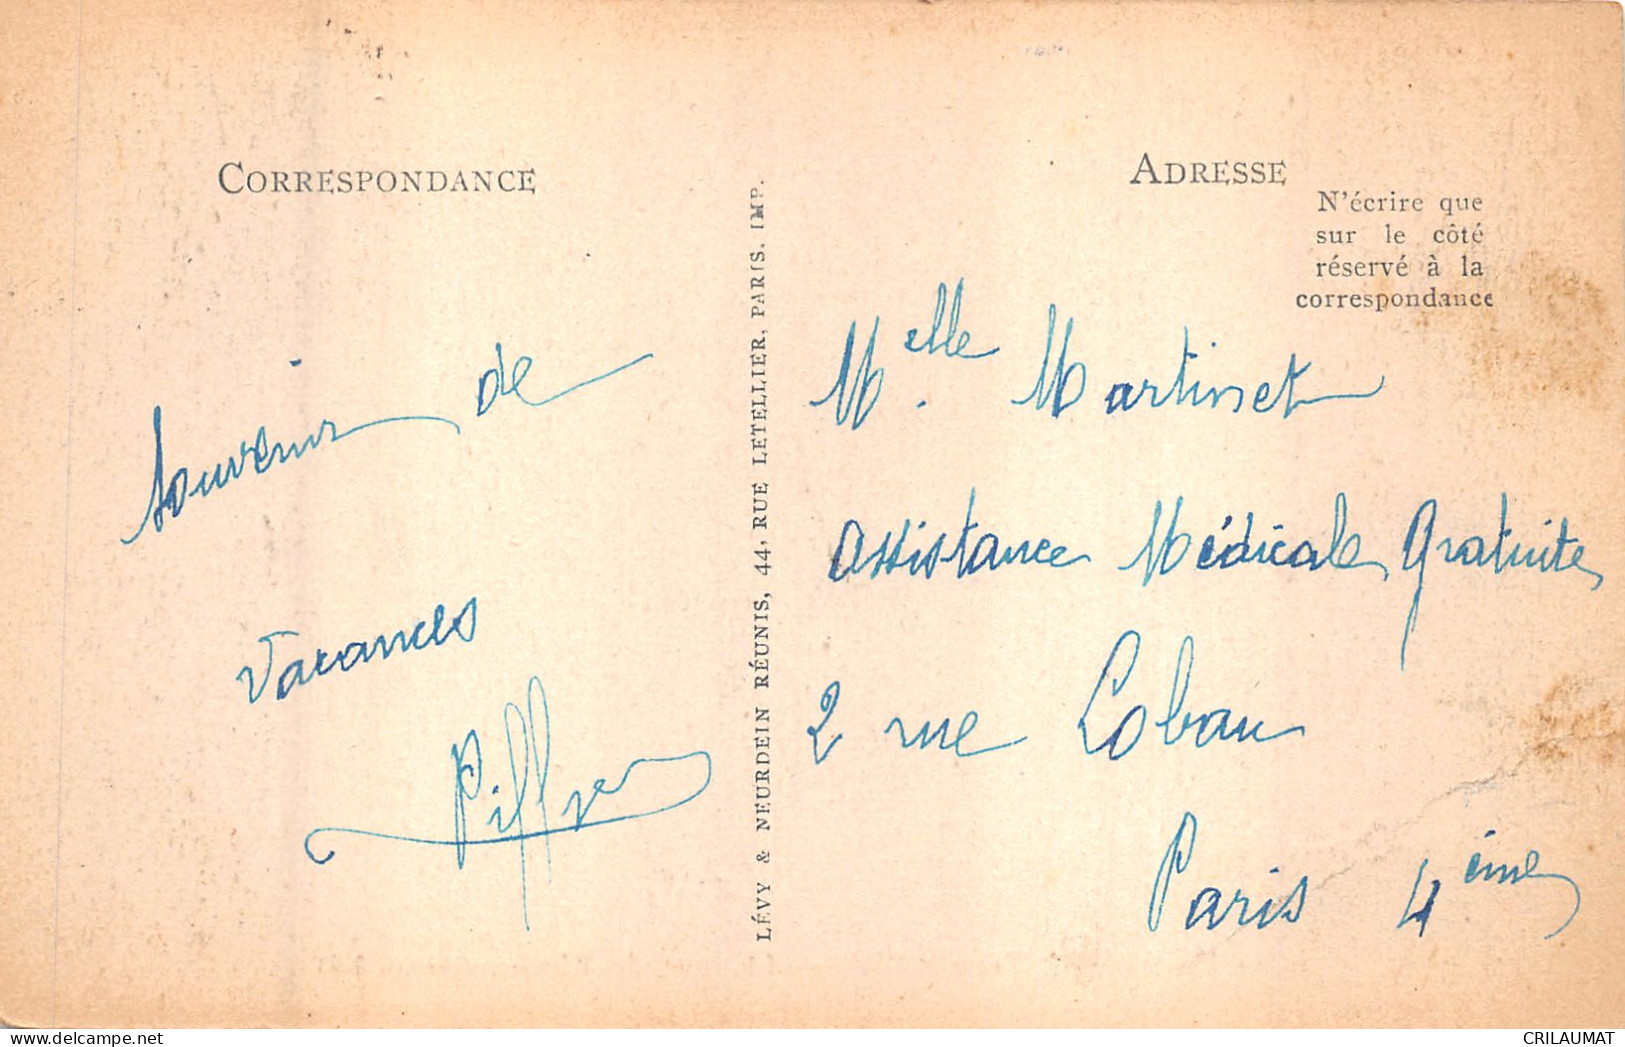 CORRESPONDANCE
Souvenir de
Vacances
LÉVY & NEURDEIN RÉUNIS, 44, RUE LETELLIER, PARIS. IMP.
ADRESSE
N'écrire que
sur le côté
réservé à la
correspondance
Melle. Martinet
Assistance Médicale Gratuite
2 rue Lobau
Paris 4ème
CRILAUMAT